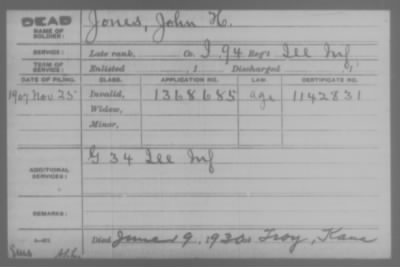 DEAD
NAME OF SOLDIER: Jones, John H.
SERVICE: Late rank, Co. I, 94 Reg't Ill Inf.
TERM OF SERVICE: Enlisted , 1 Discharged , 1
DATE OF FILING. CLASS. APPLICATION NO. LAW. CERTIFICATE NO.
1907 Nov 25 Invalid, 1368685 age 1142831
Widow,
Minor,
ADDITIONAL SERVICES: G 34 Ill Inf
REMARKS:
Died June 9, 1930 at Troy, Kans